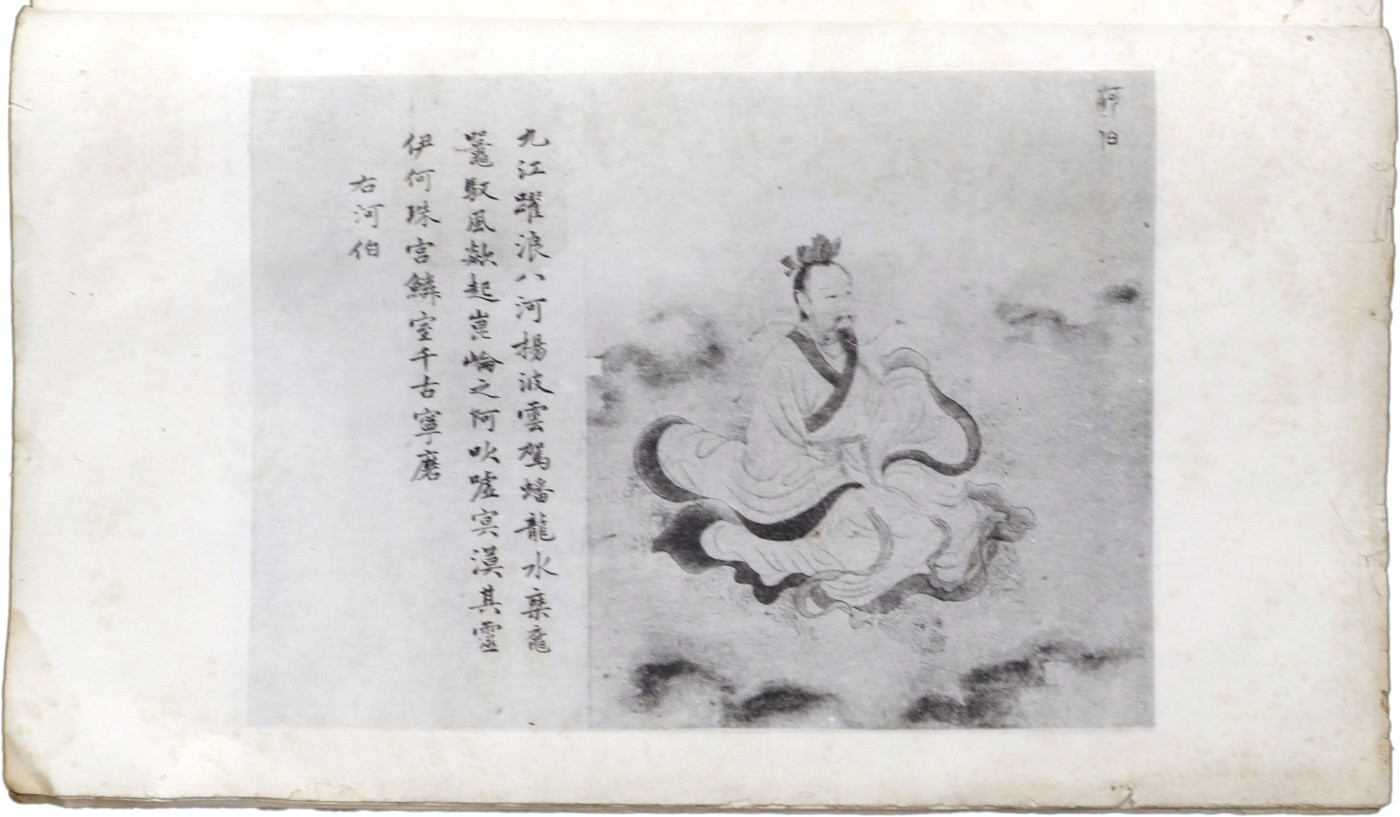 河伯
九江躍浪八河揚波雲駕蟠龍水乗黿
鼉馭風欻起崑崘之阿吹嘘冥漠其靈
伊何珠宫鱗室千古寧磨
右河伯